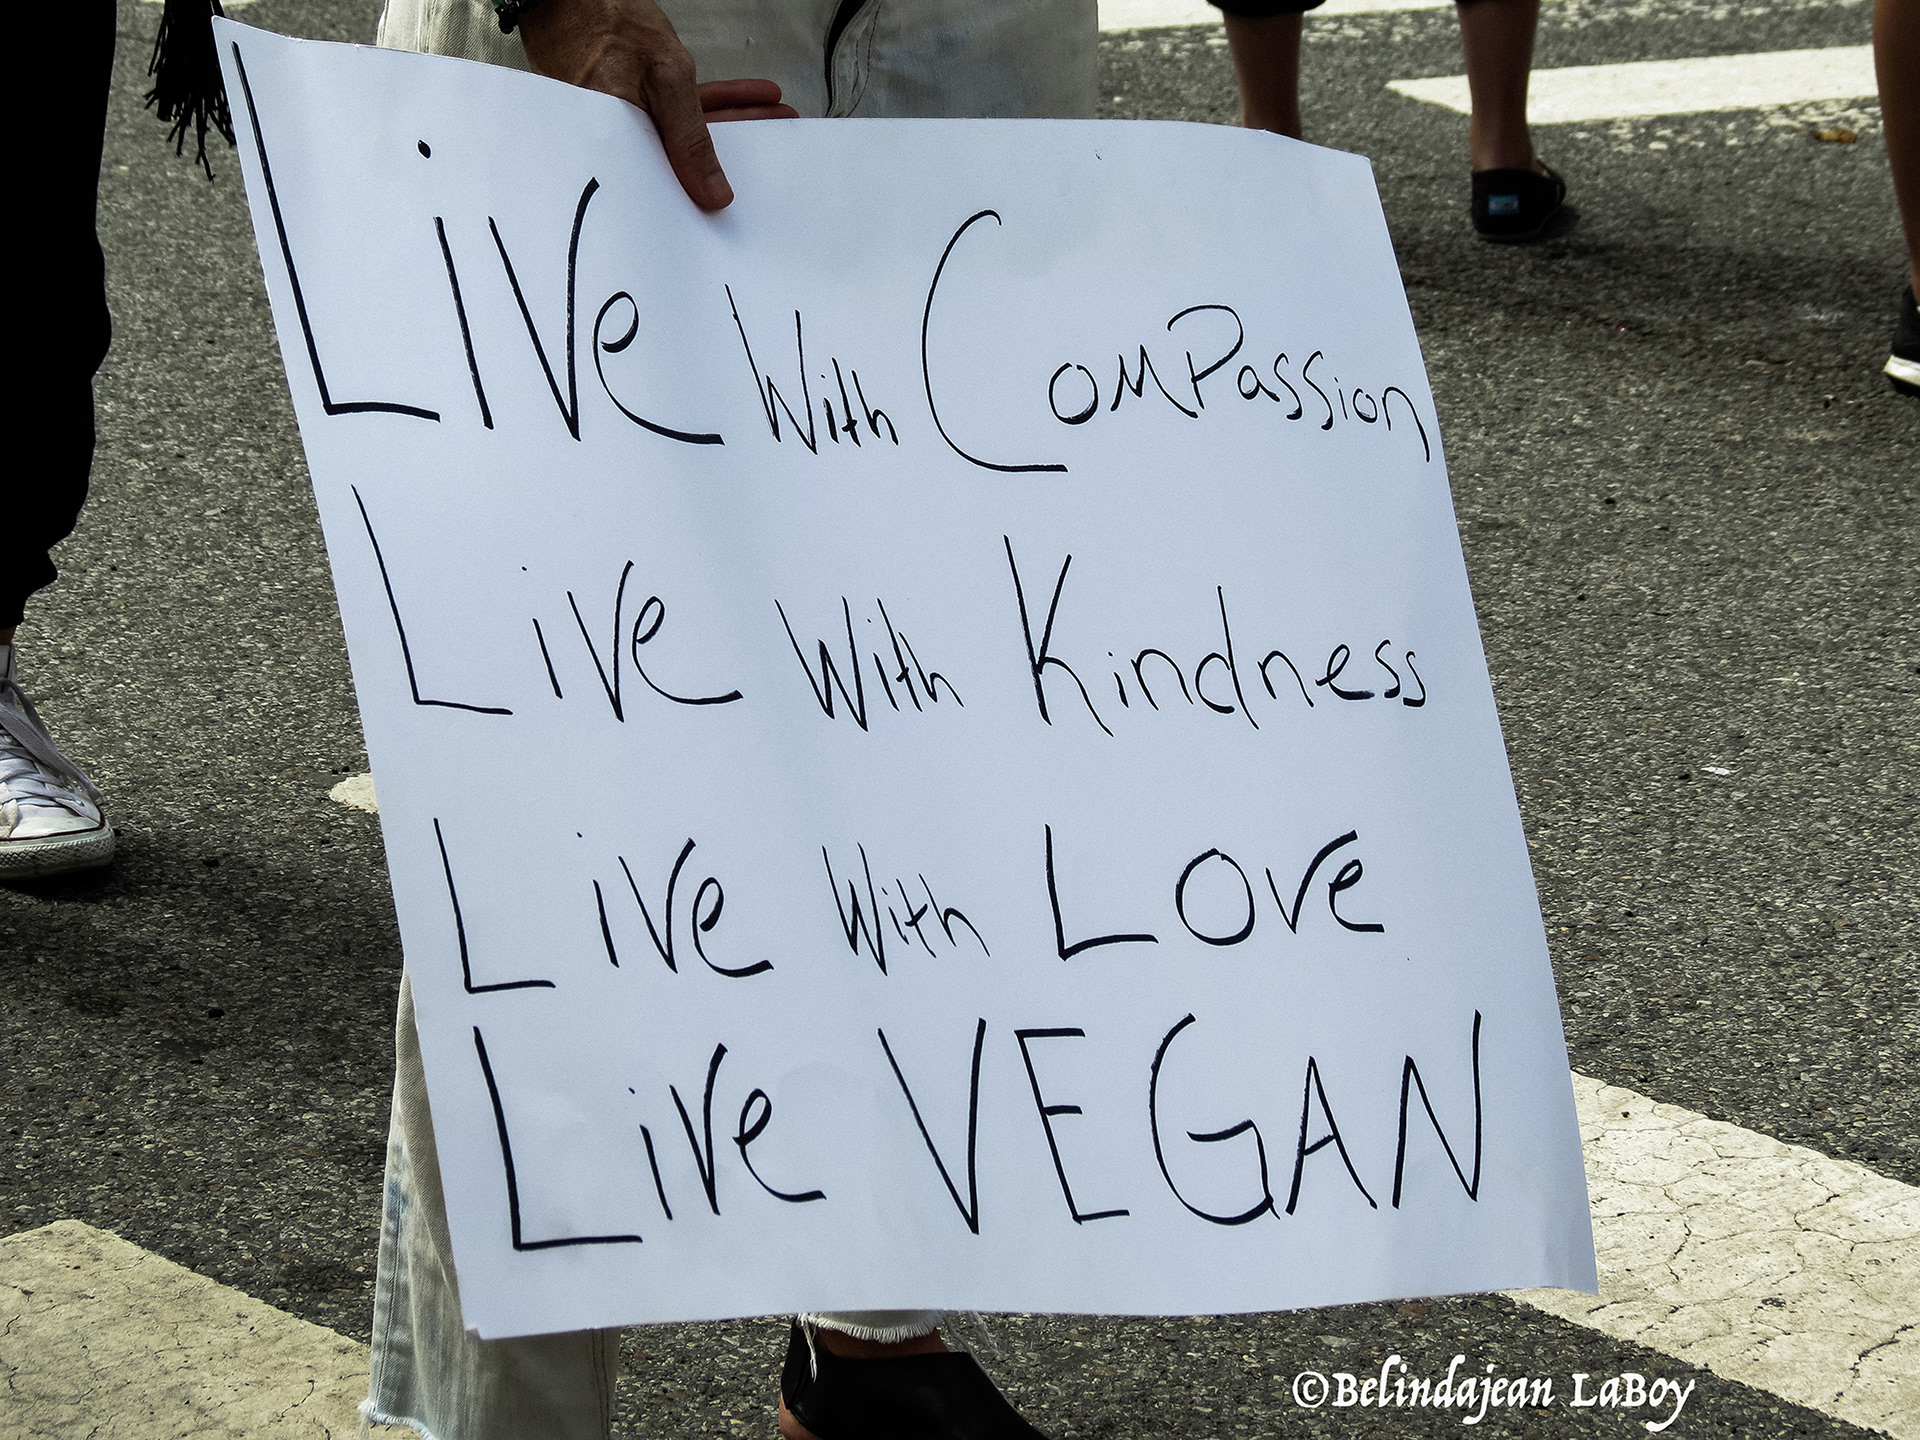 Live With ComPassion
Live With Kindness
Live With Love
Live VEGAN
©Belindajean LaBoy